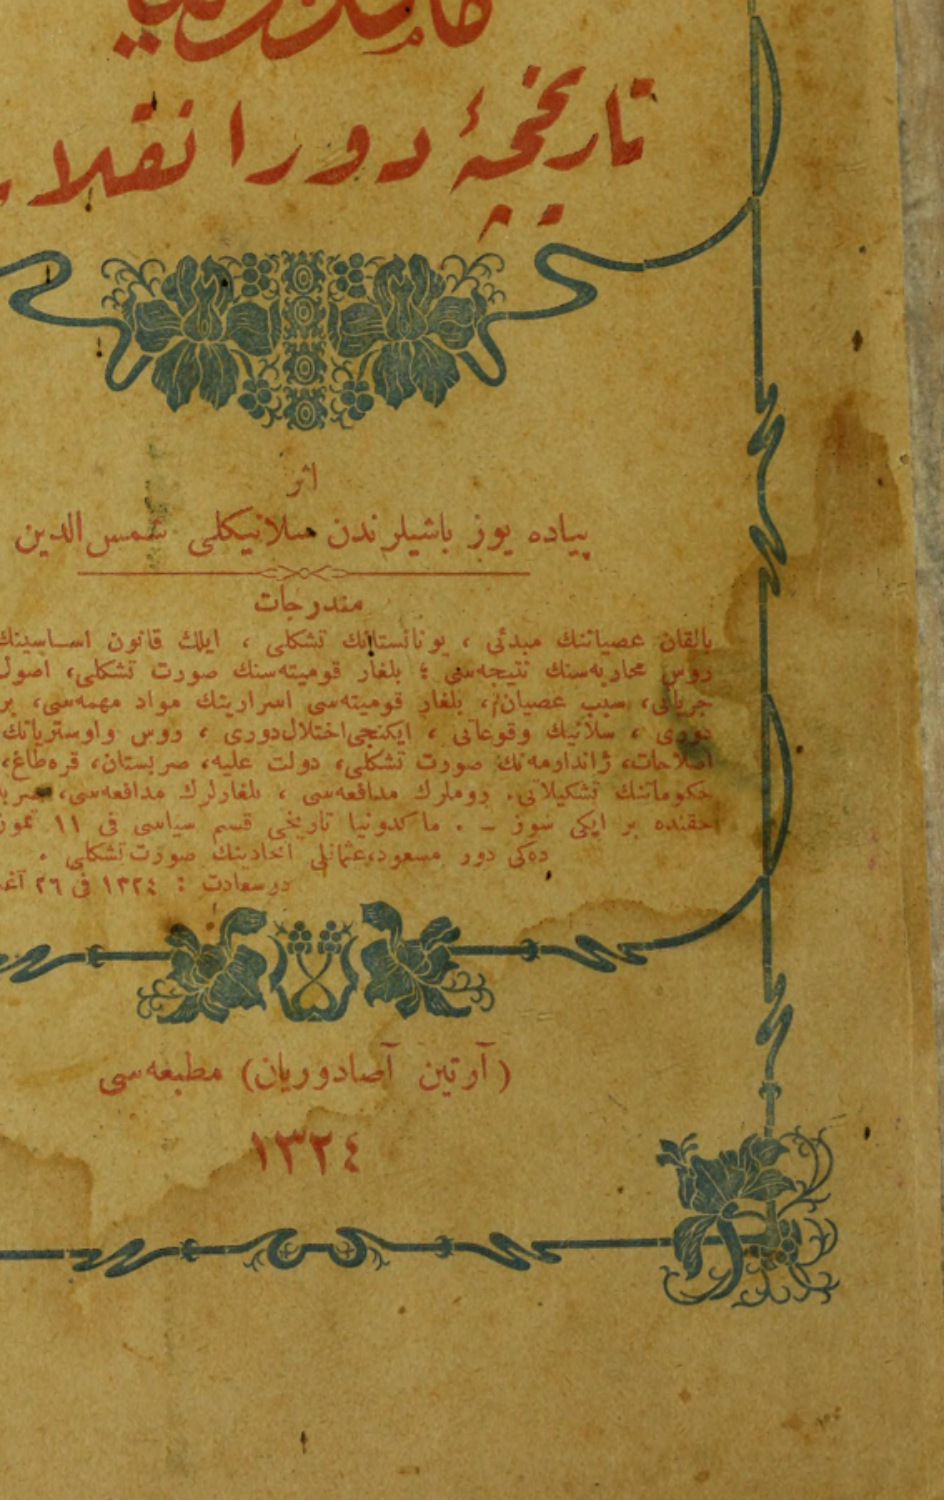 تاریخچۀ دور انقلاب
اثر
پیاده یوز باشیلرندن سلانیکلی شمس الدین
مندرجات
بالقان عصیاننك مبدئی ، یونانستانك تشکلی ، ایلك قانون اساسینك
روس محاربه‌سنك نتیجه‌سی ؛ بلغار قومیته‌سنك صورت تشکلی، اصول
جریانی، سبب عصیان، بلغار قومیته‌سی اسرارینك مواد مهمه‌سی، بر
دوری ، سلانیك وقوعاتی ، ایکنجی اختلال دوری ، روس و اوستریانك
اصلاحات، ژاندارمه‌نك صورت تشکلی، دولت علیه، صربستان، قره‌طاغ،
حکوماتنك تشکیلاتی. روملرك مدافعه‌سی ، بلغارلرك مدافعه‌سی، صرب
حقنده بر ایکی سوز ـ . ماکدونیا تاریخی قسم سیاسی فی ١١ تموز
ده‌کی دور مسعود، عثمانلی اتحادینك صورت تشکلی .
درسعادت : ١٣٢٤ فی ٢٦ آغ
(آرتین آصادوریان) مطبعه‌سی
١٣٢٤